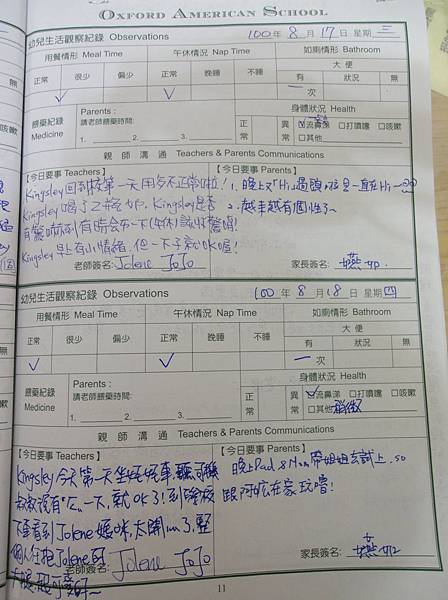 OXFORD AMERICAN SCHOOL
幼兒生活觀察紀錄 Observations 100 年 8 月 17 日 星期 三
用餐情形 Meal Time 午休情況 Nap Time 如廁情形 Bathroom
正常 很少 偏少 正常 晚睡 不睡 大便
有 狀況 無
✓ ✓ 一 次
餵藥紀錄 Parents: 身體狀況 Health
Medicine 請老師餵藥時間: 正常 異常 ☑流鼻涕 □打噴嚏 □咳嗽
1. 2. 3. □其他
親師溝通 Teachers & Parents Communications
【今日要事 Teachers】
Kingsley回到校第一天用多不正常啦!
Kingsley喝了乙瓶
Kingsley是否
有驚嚇到 有時會
Kingsley早上有小情緒,但一下子就OK喔!
老師簽名: Jolene JoJo
【今日要事 Parents】
1. 晚上又Hi過頭
一直在Hi~
2. 越來越有個性了~
家長簽名:
幼兒生活觀察紀錄 Observations 100 年 8 月 18 日 星期 四
用餐情形 Meal Time 午休情況 Nap Time 如廁情形 Bathroom
正常 很少 偏少 正常 晚睡 不睡 大便
有 狀況 無
✓ ✓ 一 次
餵藥紀錄 Parents: 身體狀況 Health
Medicine 請老師餵藥時間: 正常 異常 ☑流鼻涕 □打噴嚏 □咳嗽
1. 2. 3. □其他
親師溝通 Teachers & Parents Communications
【今日要事 Teachers】
Kingsley今天第一天坐娃娃車,聽司機
叔叔說有"ㄥ"一下,就OK了!到學校
下車看到Jolene媽咪,太開心了,整
個人任抱Jolene的
大腿
老師簽名: Jolene JoJo
【今日要事 Parents】
晚上Dad & Mom帶姐姐去試上,so
跟阿
在家玩嚕!
家長簽名:
11